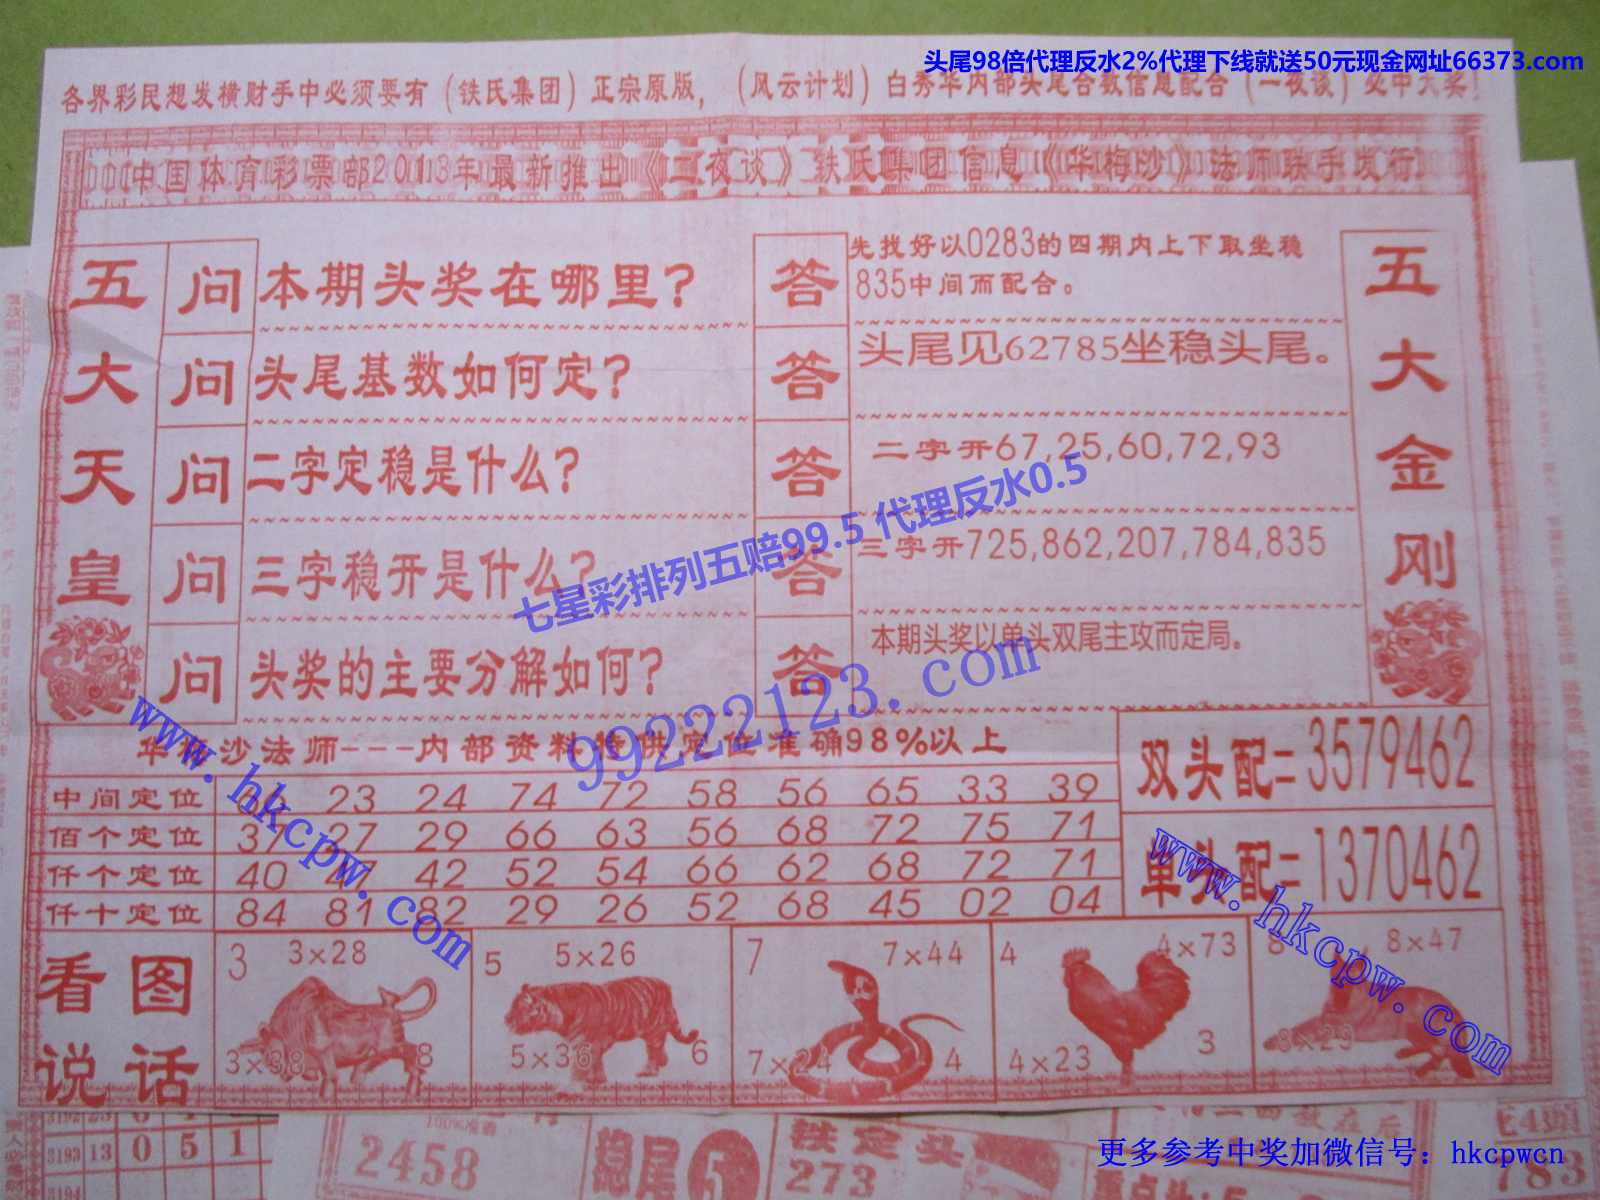 头尾98倍代理反水2%代理下线就送50元现金网址66373.com
各界彩民想发横财手中必须要有（铁氏集团）正宗原版，（风云计划）白秀华内部头尾合数信息配合（一夜谈）必中大奖！
中国体育彩票部2013年最新推出《二夜谈》铁氏集团信息《华梅沙》法师联手发行
五大天皇
问 本期头奖在哪里？
答 先找好以0283的四期内上下取坐稳
835中间而配合。
问 头尾基数如何定？
答 头尾见62785坐稳头尾。
问 二字定稳是什么？
答 二字开67,25,60,72,93
问 三字稳开是什么？
答 三字开725,862,207,784,835
问 头奖的主要分解如何？
答 本期头奖以单头双尾主攻而定局。
五大金刚
七星彩排列五赔99.5 代理反水0.5
99222123.com
www.hkcpw.com
www.hkcpw.com
华 沙法师---内部资料特供定位准确98%以上
中间定位 23 24 74 72 58 56 65 33 39
佰个定位 37 27 29 66 63 56 68 72 75 71
仟个定位 40 42 52 54 66 62 68 72 71
仟十定位 84 81 82 29 26 52 68 45 02 04
双头配=3579462
单头配=1370462
看图说话
3 3×28
3×38 8
5 5×26
5×36 6
7 7×44
7×24 4
4 4×73
4×23 3
8 8×47
8×29
3192 23
3193 13 0 5 1
3194
100%准确
2458
稳尾5
铁定头
273
783
更多参考中奖加微信号：hkcpwcn